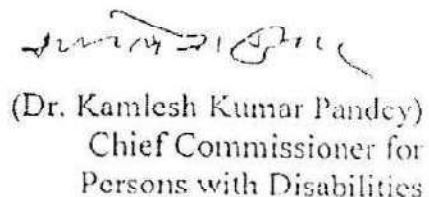 (Dr. Kamlesh Kumar Pandey)
Chief Commissioner for
Persons with Disabilities